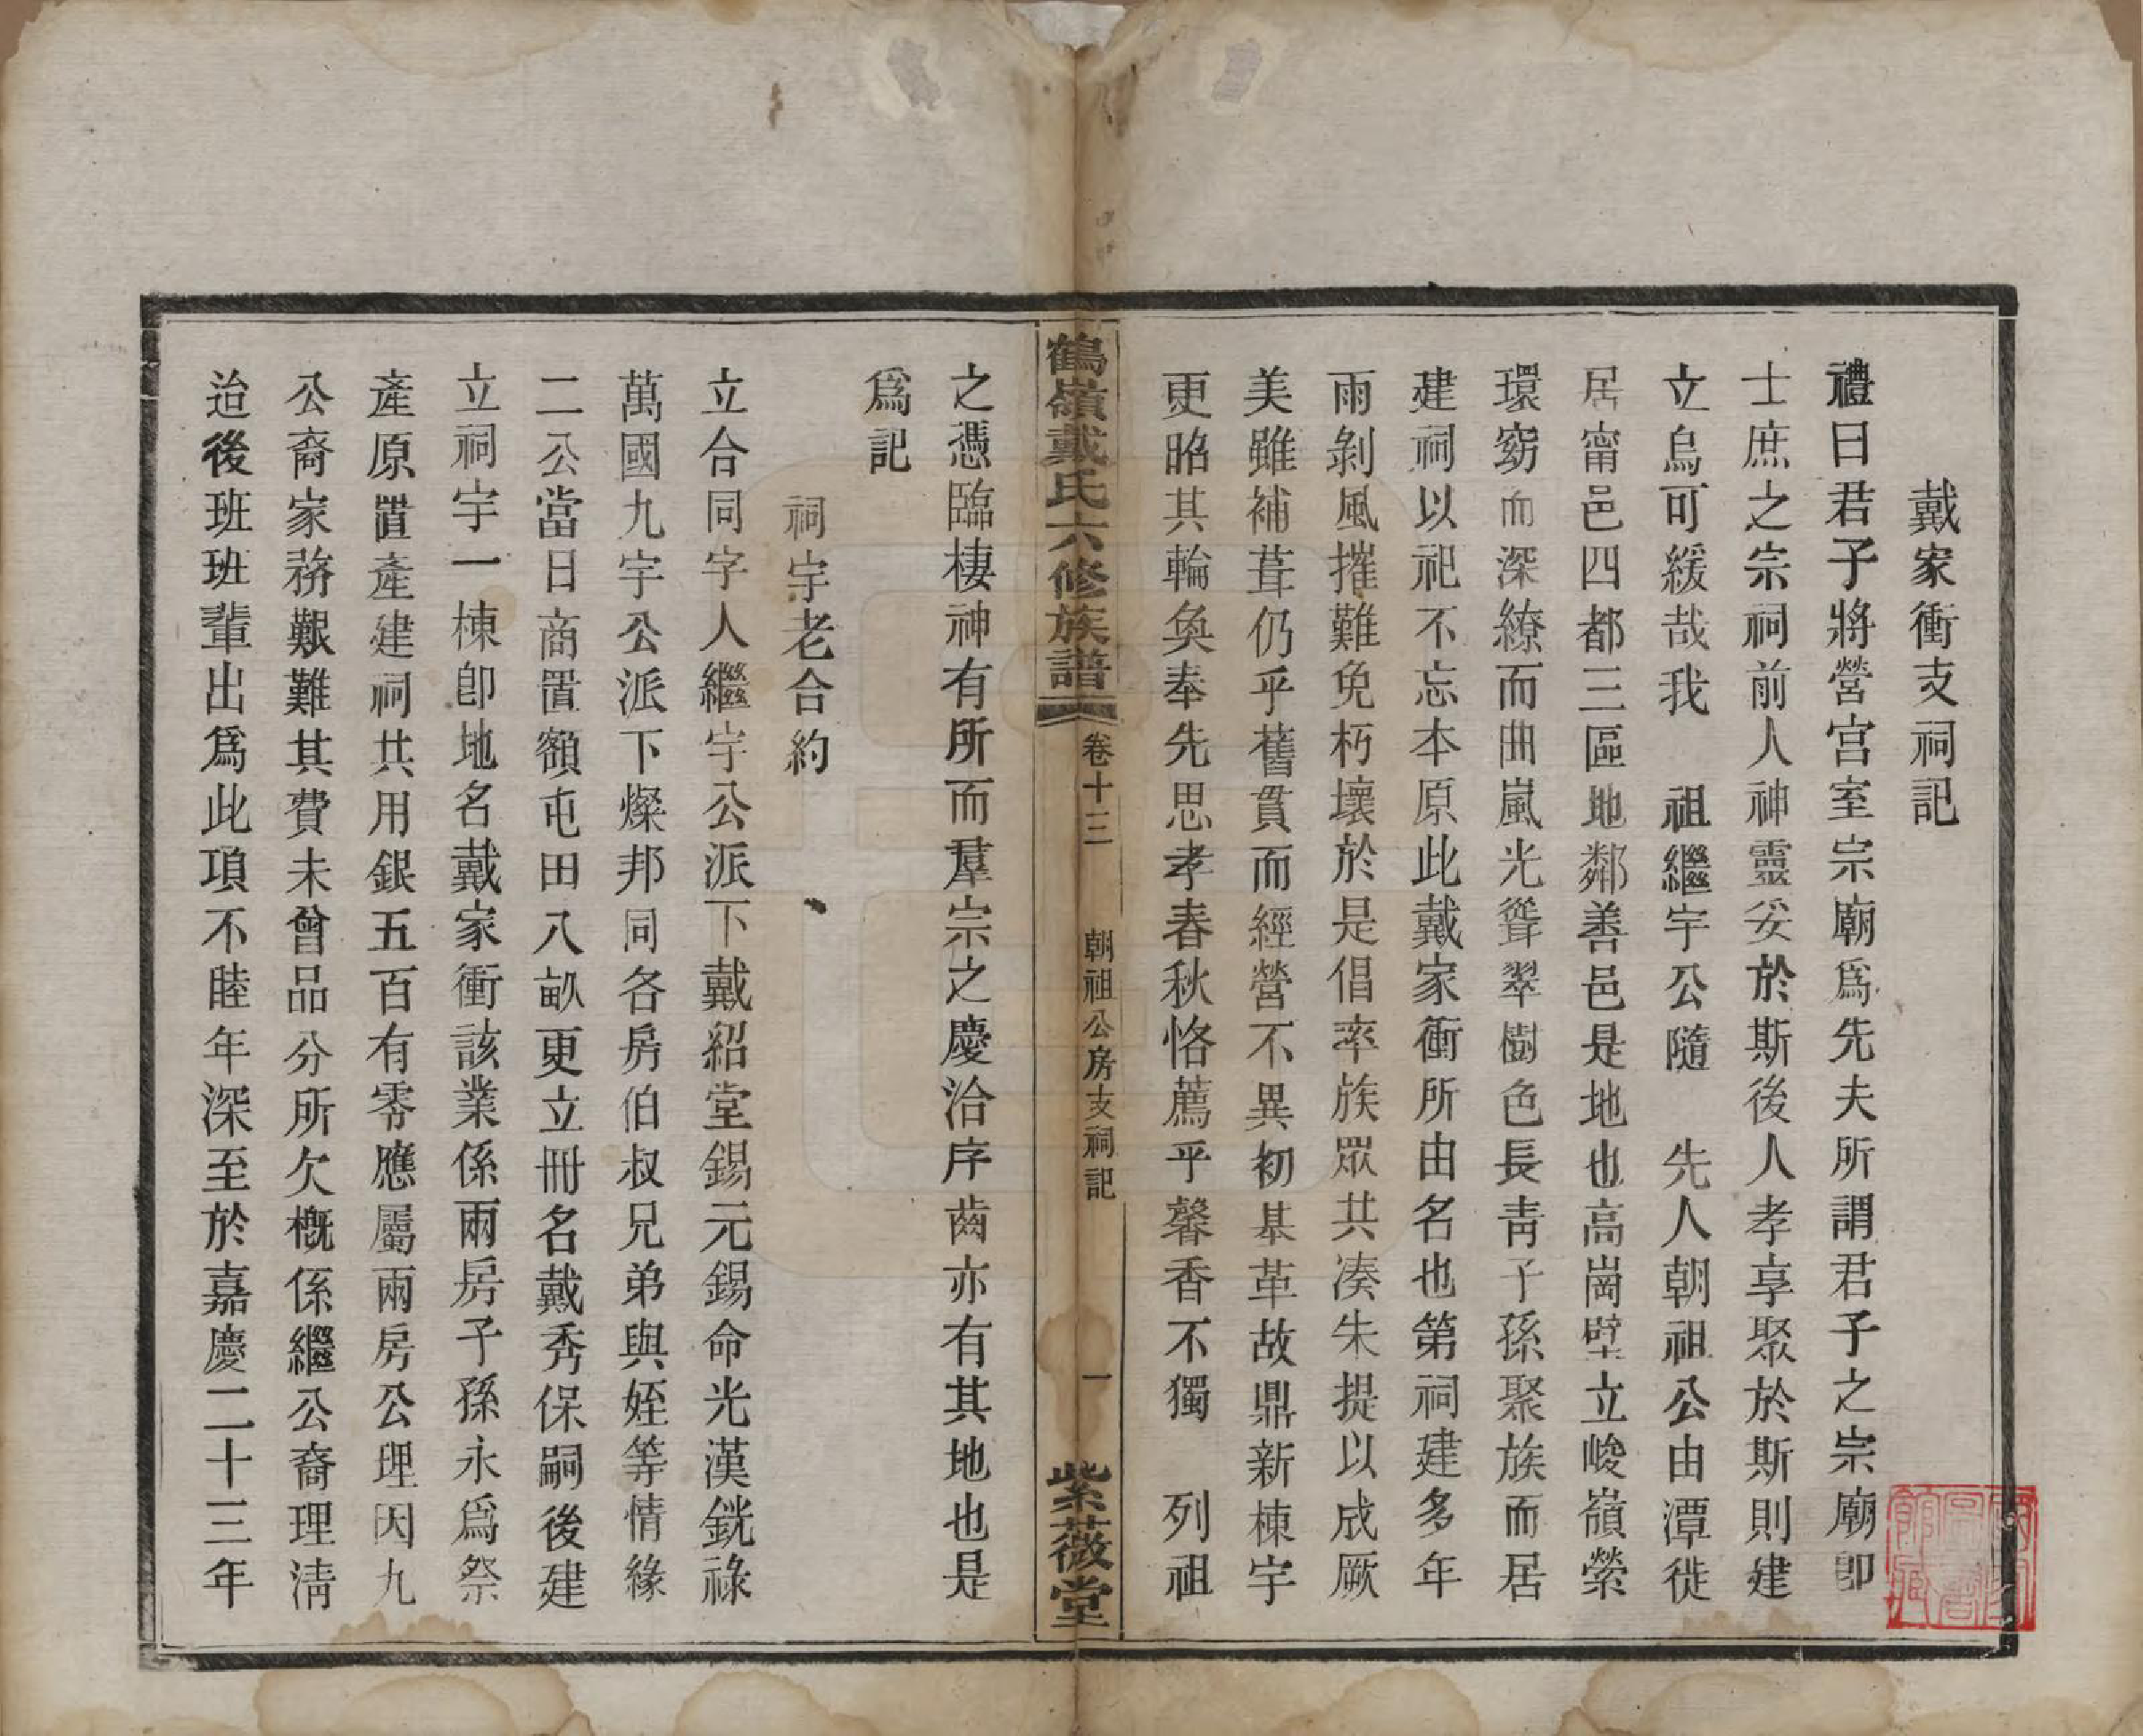 戴家衝支祠記
禮曰君子將營宮室宗廟爲先夫所謂君子之宗廟卽
士庶之宗祠前人神靈妥於斯後人孝享聚於斯則建
立烏可緩哉我　祖繼宇公隨　先人朝祖公由潭徙
居甯邑四都三區地鄰善邑是地也高崗壁立峻嶺縈
環窈而深繚而曲嵐光聳翠樹色長青子孫聚族而居
建祠以祀不忘本原此戴家衝所由名也第祠建多年
雨剝風摧難免朽壞於是倡率族眾共凑朱提以成厥
美雖補葺仍乎舊貫而經營不異初基革故鼎新棟宇
更昭其輪奐奉先思孝春秋恪薦乎馨香不獨　列祖
鶴嶺戴氏六修族譜　卷十三　朝祖公房支祠記　一　紫薇堂
之憑臨棲神有所而羣宗之慶洽序齒亦有其地也是
爲記
祠宇老合約
立合同字人繼宇公派下戴紹堂錫元錫命光漢銑祿
萬國九宇公派下燦邦同各房伯叔兄弟與姪等情緣
二公當日商置額屯田八畝更立冊名戴秀保嗣後建
立祠宇一棟卽地名戴家衝該業係兩房子孫永爲祭
產原置產建祠共用銀五百有零應屬兩房公理因九
公裔家務艱難其費未曾品分所欠概係繼公裔理淸
迨後班班輩出爲此項不睦年深至於嘉慶二十三年